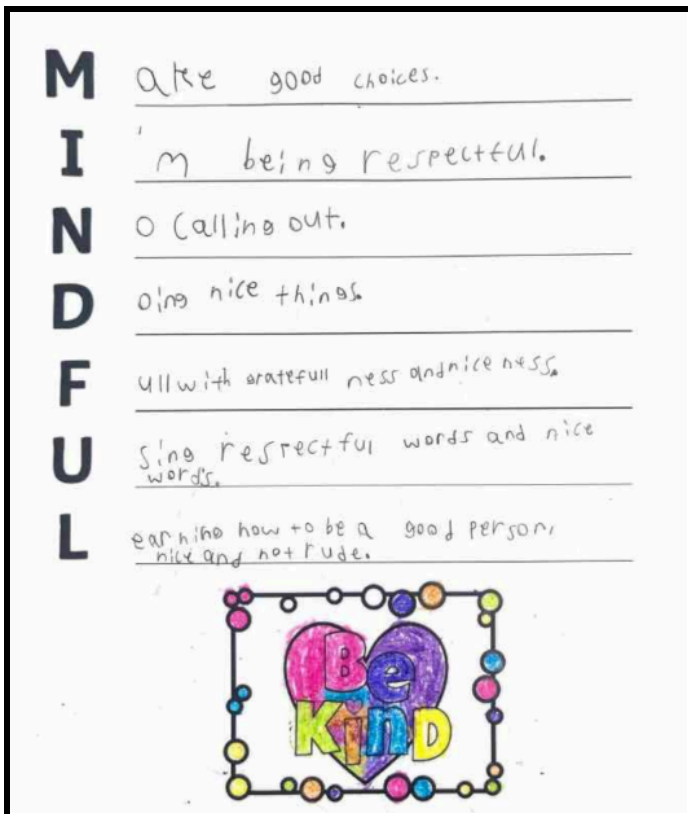 Make good choices.
I'm being respectful.
No Calling out.
Doing nice things.
Full with gratefull ness and nice ness.
Using respectful words and nice
words.
Learning how to be a good person,
nice and not rude.
Be
Kind